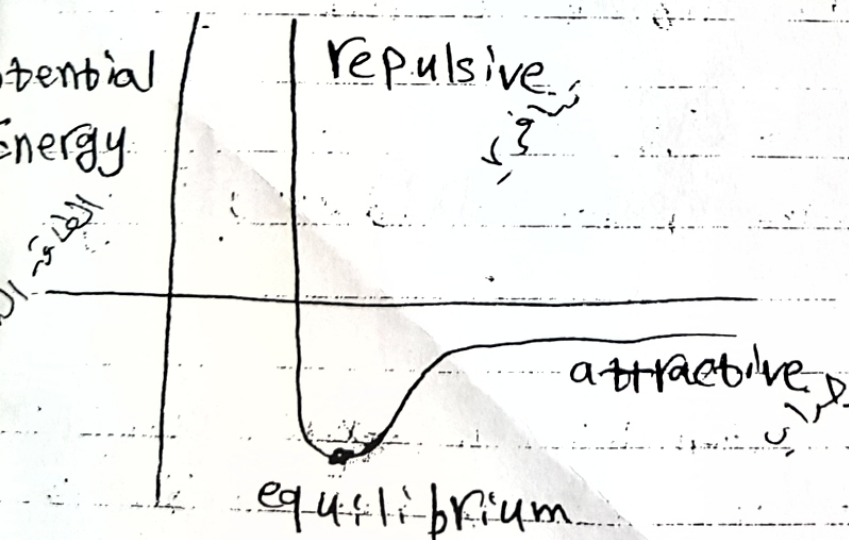 tential
Energy
repulsive
attractive
equilibrium